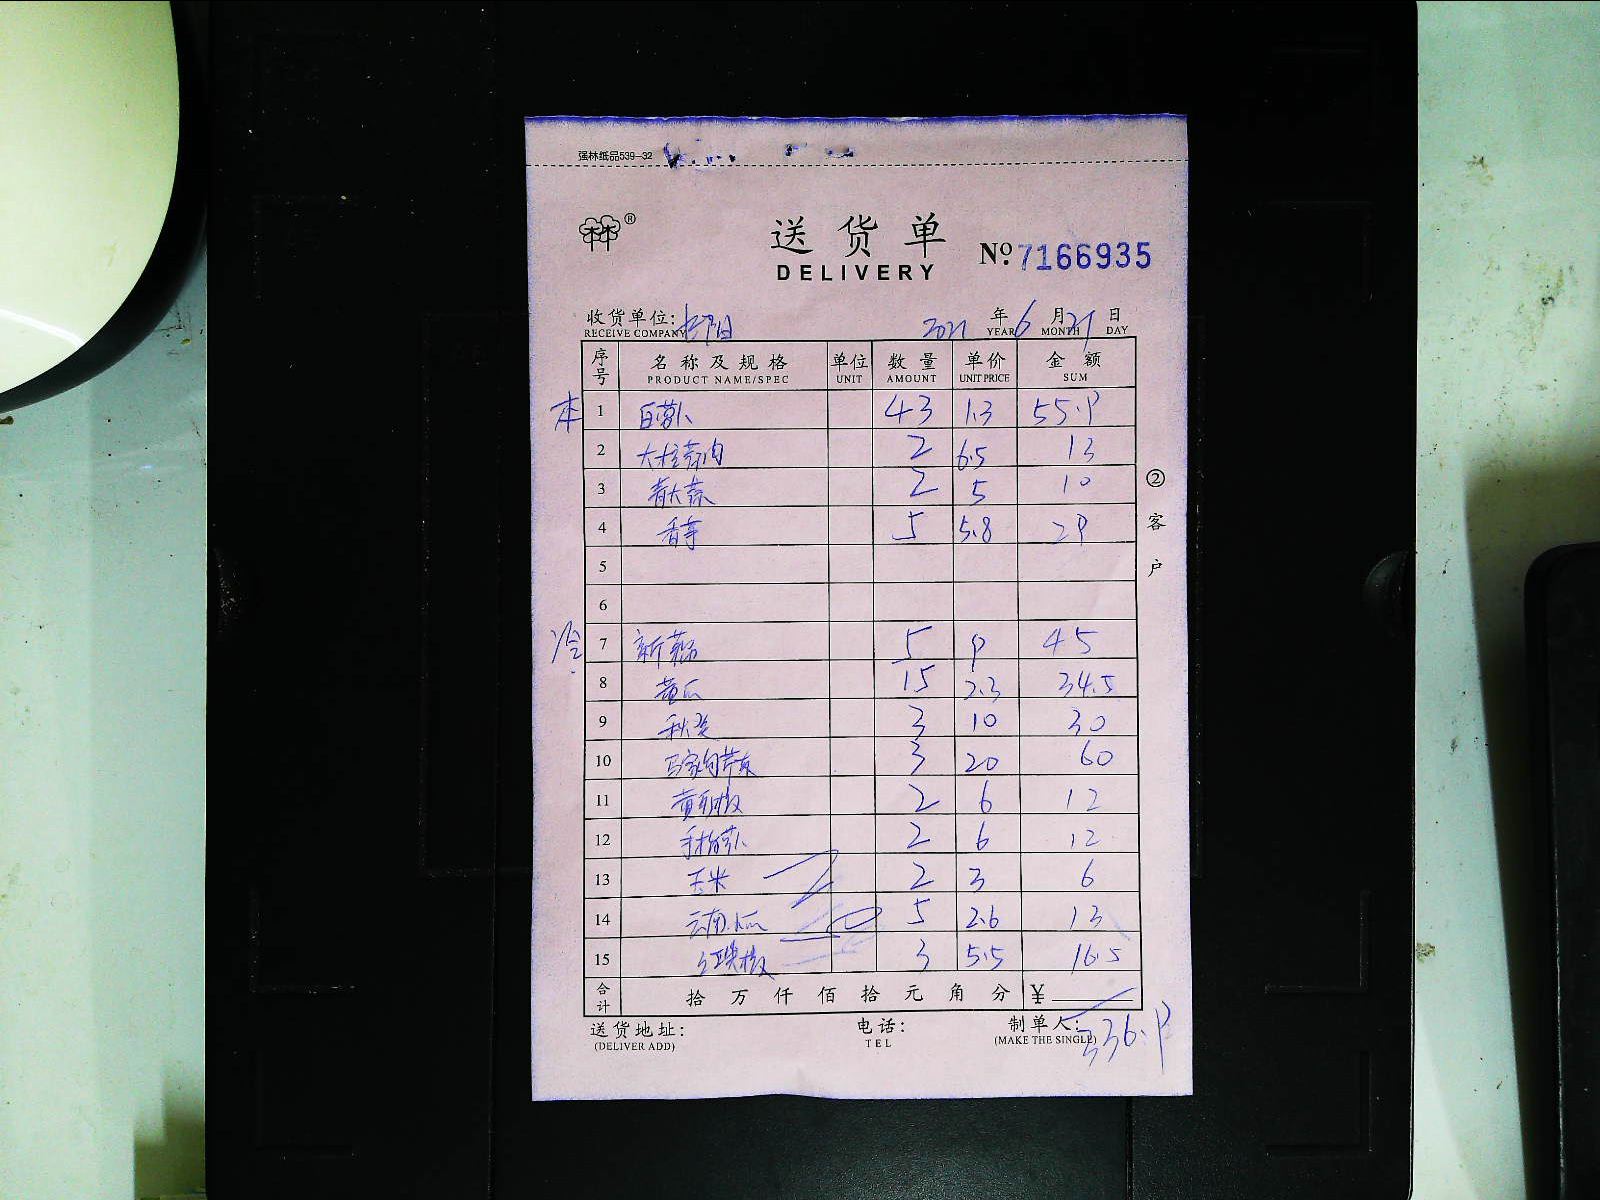 强林纸品539-32
林®
送货单
DELIVERY
No. 7166935
收货单位:
RECEIVE COMPANY
2021 年 6 月 21 日
YEAR MONTH DAY
序号 名称及规格 单位 数量 单价 金额
PRODUCT NAME/SPEC UNIT AMOUNT UNIT PRICE SUM
本 1 白萝卜 43 1.3 55.9
2 2 6.5 13
3 2 5 10
4 香芋 5 5.8 29
5
6
冷 7 5 9 45
8 黄瓜 15 2.3 34.5
9 秋葵 3 10 30
10 马家沟芹菜 3 20 60
11 黄彩椒 2 6 12
12 手指萝卜 2 6 12
13 玉米 2 3 6
14 云南小瓜 5 2.6 13
15 3 5.5 16.5
合计 拾万仟佰拾元角分 ¥
336.9
送货地址: 电话: 制单人:
(DELIVER ADD) TEL (MAKE THE SINGLE)
②客户